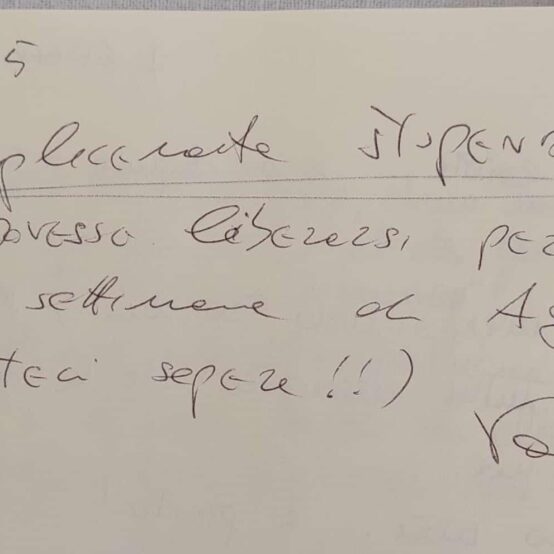 5
plicemente stupend
dovesse liberarsi per
settimana di Ag
teci sapere!!)
Va